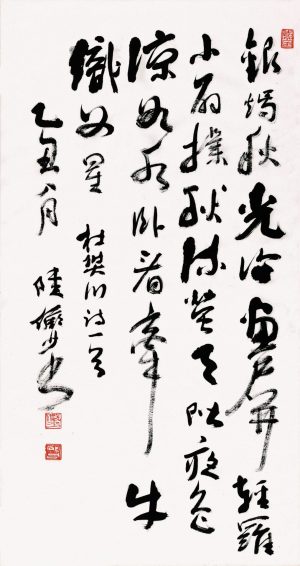 銀燭秋光冷畫屏輕羅
小扇撲流螢天階夜色
涼如水卧看牽牛
織女星 杜樊川詩一首
乙丑八月 陸儼少書